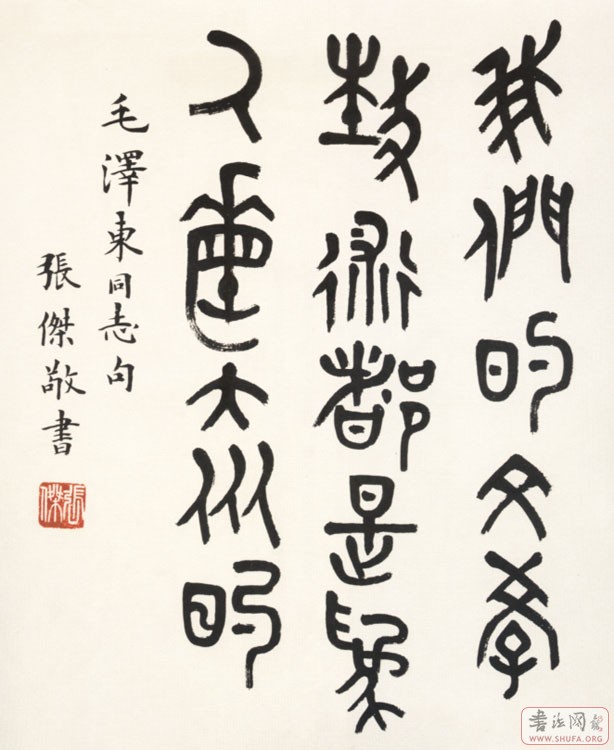 我們的文學
藝術都是為
人民大眾的
毛澤東同志句
張傑敬書
張傑
書法网
WWW.SHUFA.ORG